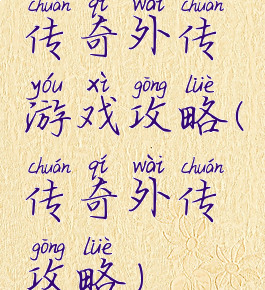 chuán qí wài chuán
传奇外传
yóu xì gōng lüè
游戏攻略(
chuán qí wài chuán
传奇外传
gōng lüè
攻略)